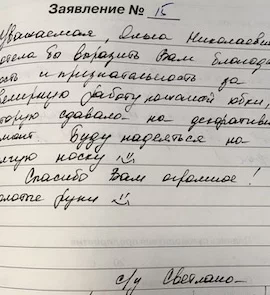 Заявление № 15
Уважаемая, Ольга Николаевн
хотела бы выразить Вам благода
ность и признательность за
мерную работу кожаной юбки,
торую сдавала на декоративн
монт буду надеяться на
лгую носку
Спасибо Вам огромное!
олотые руки
с/у Светлана